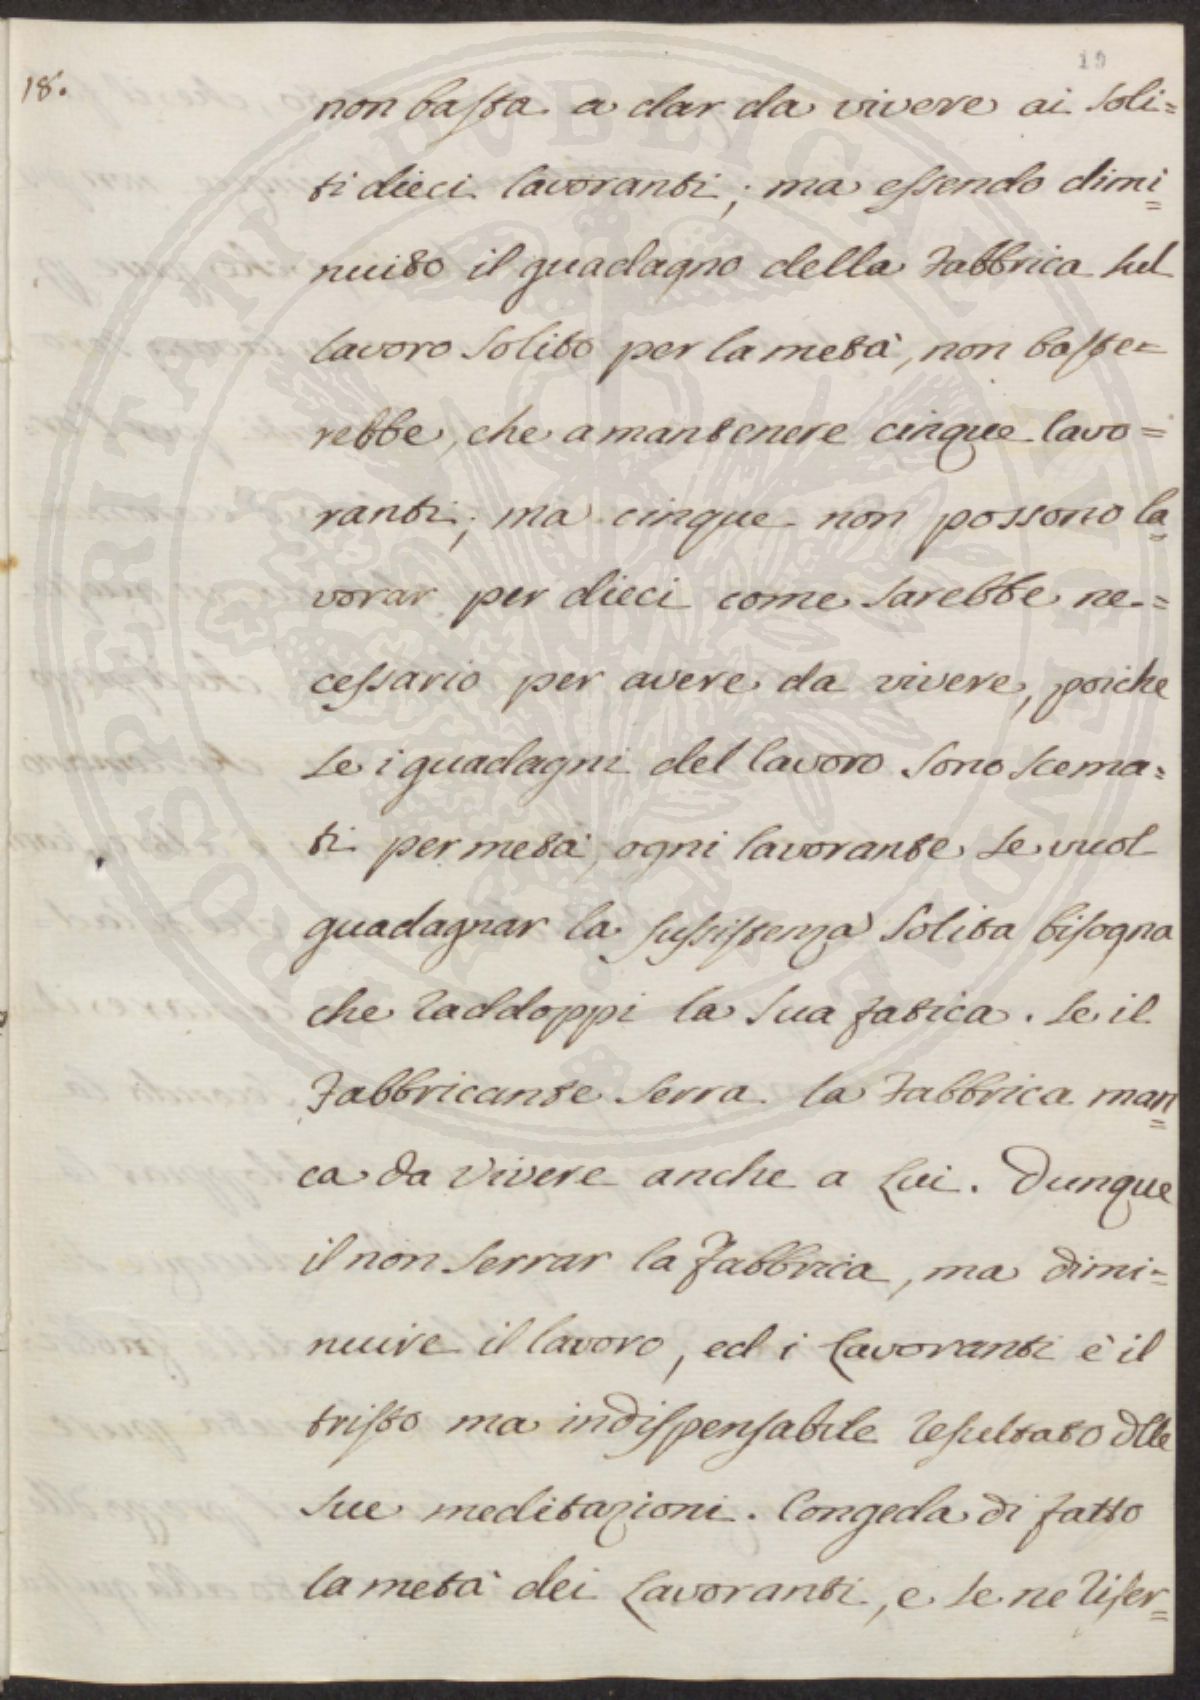 19
18.
non basta a dar da vivere ai soli=
ti dieci lavoranti; ma essendo dimi=
nuito il guadagno della Fabbrica sul
lavoro solito per la metà, non baste=
rebbe, che a mantenere cinque lavo=
ranti; ma cinque non possono la=
vorar per dieci come sarebbe ne-=
cessario per avere da vivere, poiche
se i guadagni del lavoro sono scema=
ti per metà, ogni lavorante se vuol
guadagnar la sussistenza solita bisogna
che raddoppi la sua fatica. Se il
Fabbricante serra la Fabbrica man=
ca da vivere anche a Lui. Dunque
il non serrar la Fabbrica, ma dimi=
nuire il lavoro, ed i Lavoranti è il
tristo ma indispensabile resultato dlle
sue meditazioni. Congeda di fatto
la metà dei Lavoranti, e se ne riser=
PROSPERITATI PVBLICAE AVGENDAE